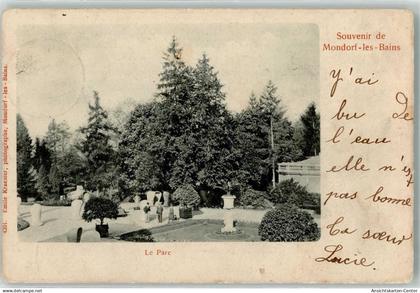 Souvenir de
Mondorf-les-Bains
Cli. v. Emile Kraemer, photograph, Mondorf-les-Bains.
J'ai
bu de
l'eau
elle n'est
pas bonne
Ta sœur
Lucie.
Le Parc
www.ansichtskarten-center.de Ansichtskarten-Center Onlineshop